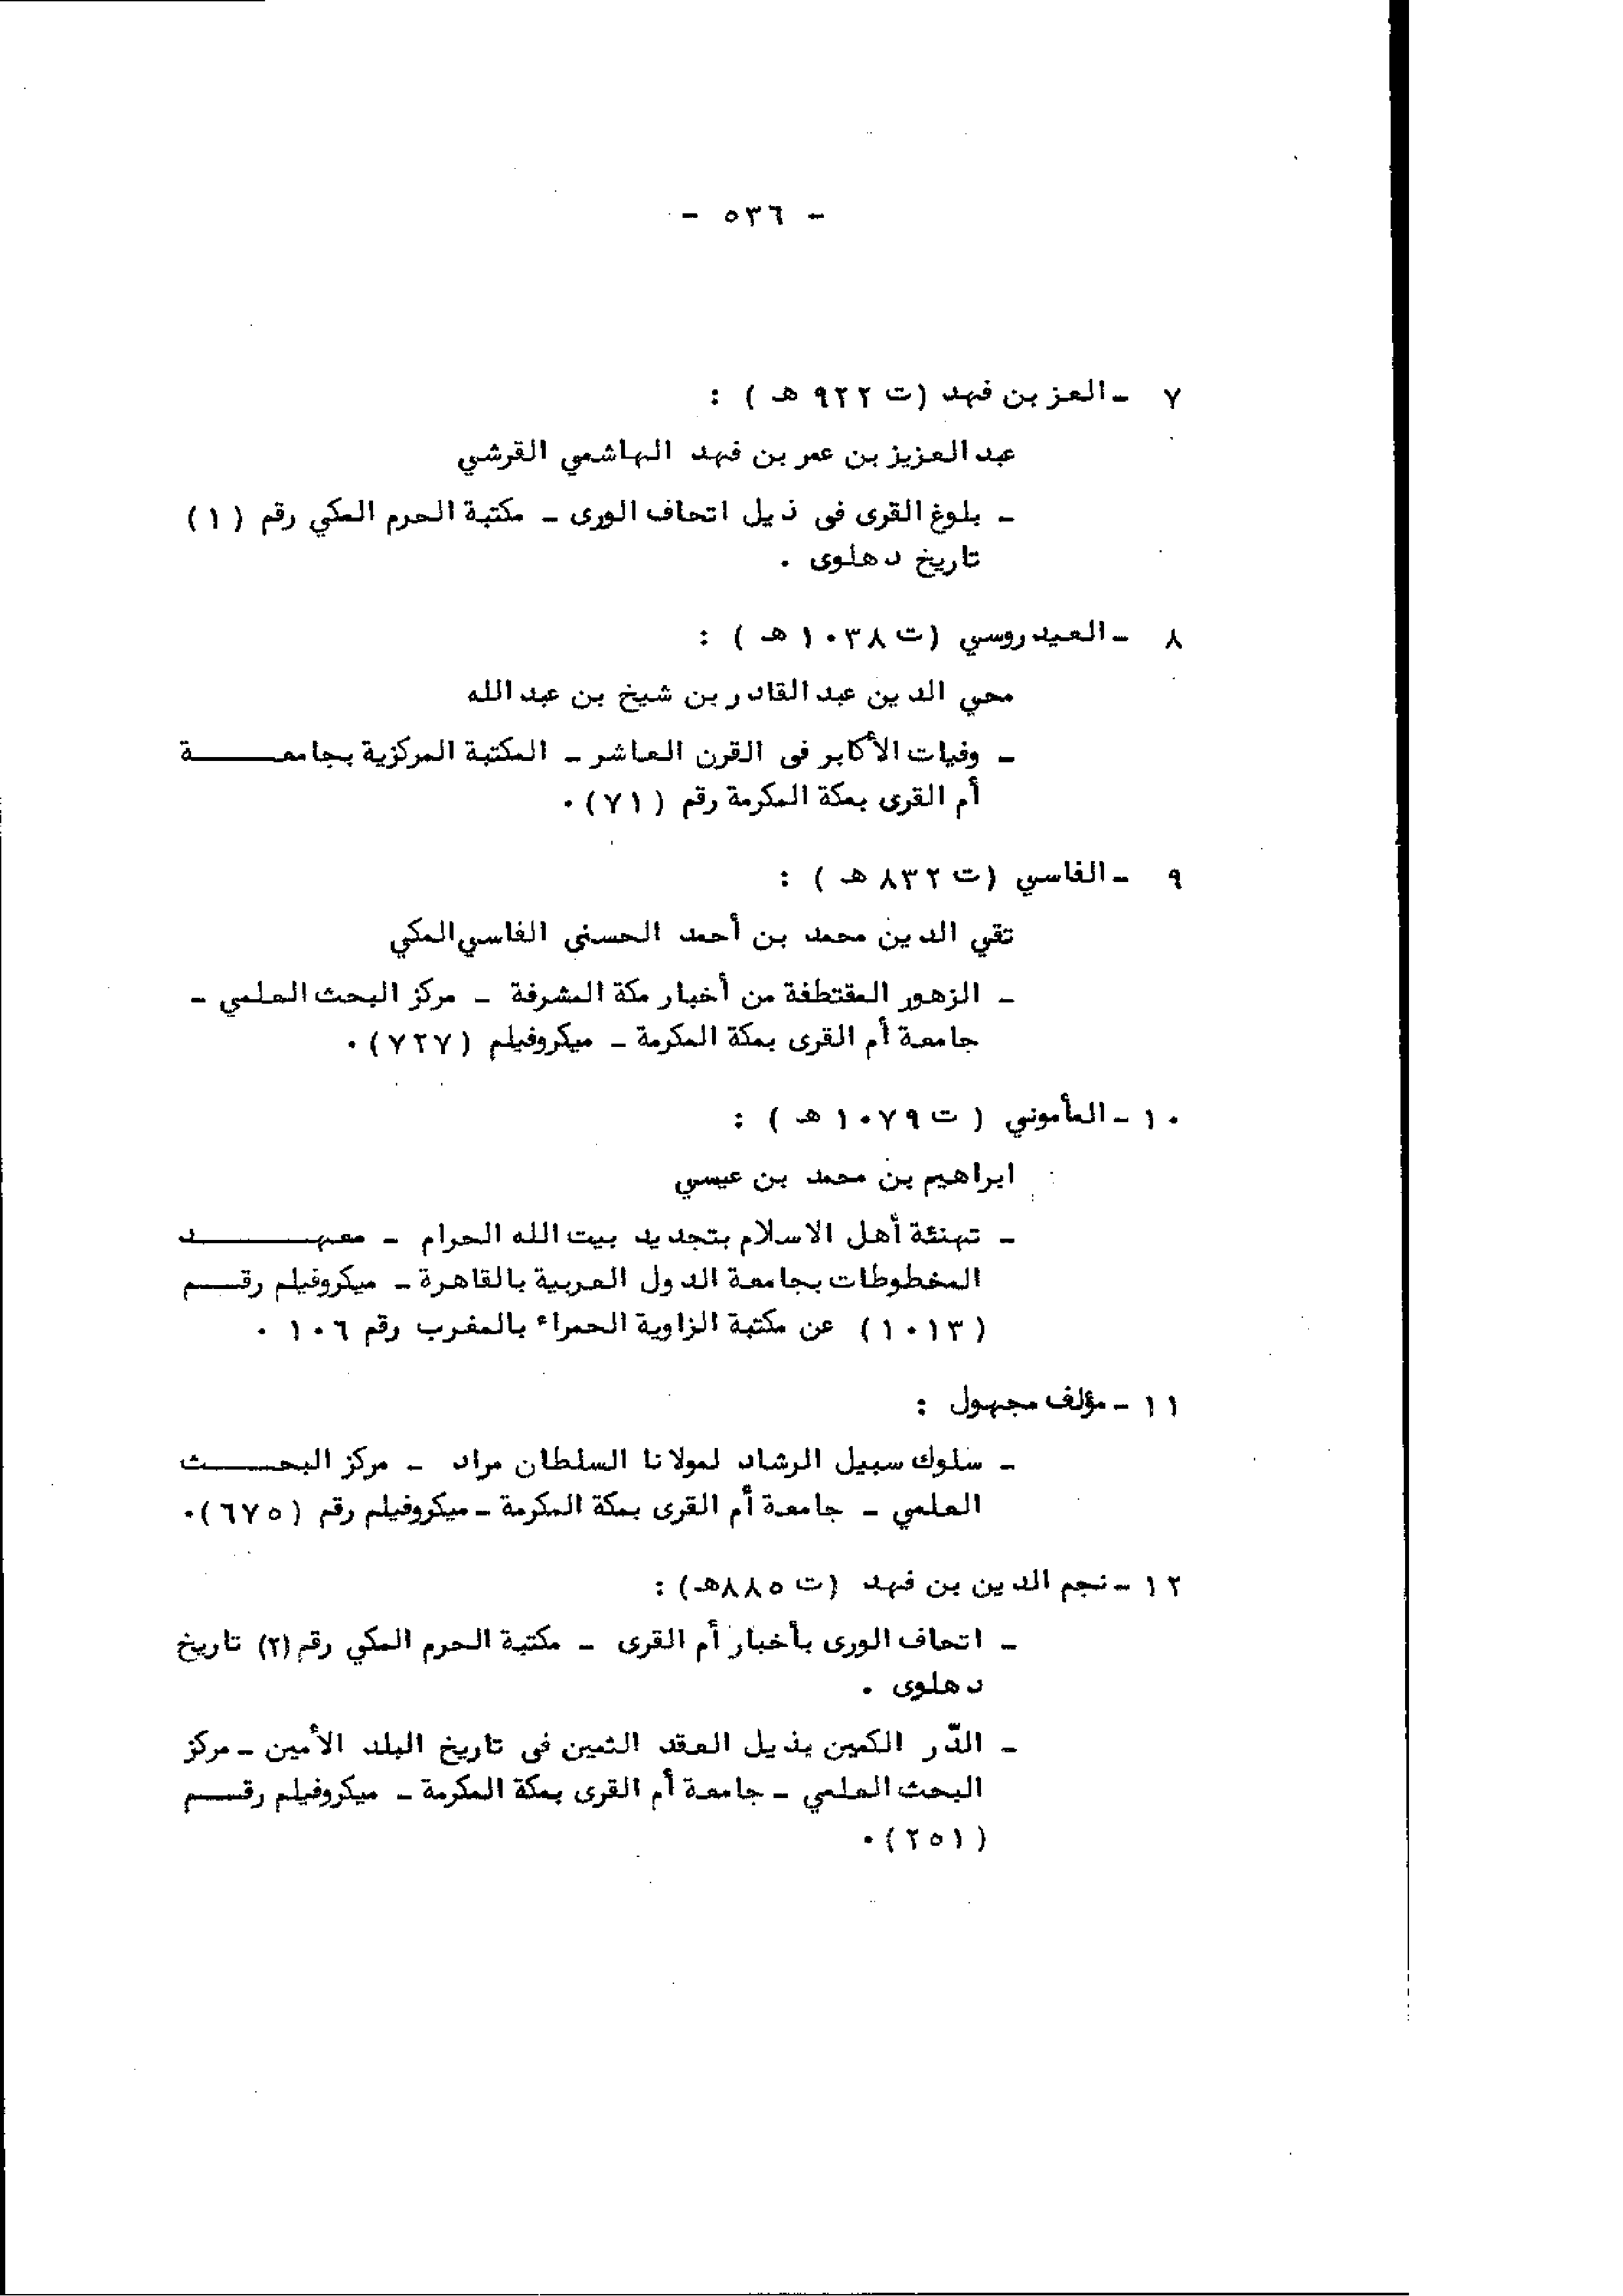 - ٥٣٦ -
٧ - العز بن فهد (ت ٩٢٢ هـ ) :
عبد العزيز بن عمر بن فهد الهاشمي القرشي
- بلوغ القرى فى ذيل اتحاف الورى - مكتبة الحرم المكي رقم (١)
تاريخ دهلوى .
٨ - العيدروسي (ت ١٠٣٨ هـ ) :
محي الدين عبد القادر بن شيخ بن عبد الله
- وفيات الأكابر فى القرن العاشر - المكتبة المركزية بجامعـــــة
أم القرى بمكة المكرمة رقم (٧١) .
٩ - الفاسي (ت ٨٣٢ هـ ) :
تقي الدين محمد بن أحمد الحسنى الفاسي المكي
- الزهور المقتطفة من أخبار مكة المشرفة - مركز البحث العلمي -
جامعة أم القرى بمكة المكرمة - ميكروفيلم (٧٢٧) .
١٠ - المأموني ( ت ١٠٧٩ هـ ) :
ابراهيم بن محمد بن عيسي
- تهنئة أهل الاسلام بتجديد بيت الله الحرام - معهـــــــد
المخطوطات بجامعة الدول العربية بالقاهرة - ميكروفيلم رقـــم
(١٠١٣) عن مكتبة الزاوية الحمراء بالمغرب رقم ١٠٦ .
١١ - مؤلف مجهول :
- سلوك سبيل الرشاد لمولانا السلطان مراد - مركز البحــــث
العلمي - جامعة أم القرى بمكة المكرمة - ميكروفيلم رقم (٦٧٥) .
١٢ - نجم الدين بن فهد (ت ٨٨٥هـ) :
- اتحاف الورى بأخبار أم القرى - مكتبة الحرم المكي رقم (٢) تاريخ
دهلوى .
- الدّر الكمين بذيل العقد الثمين فى تاريخ البلد الأمين - مركز
البحث العلمي - جامعة أم القرى بمكة المكرمة - ميكروفيلم رقـــم
(٢٥١) .